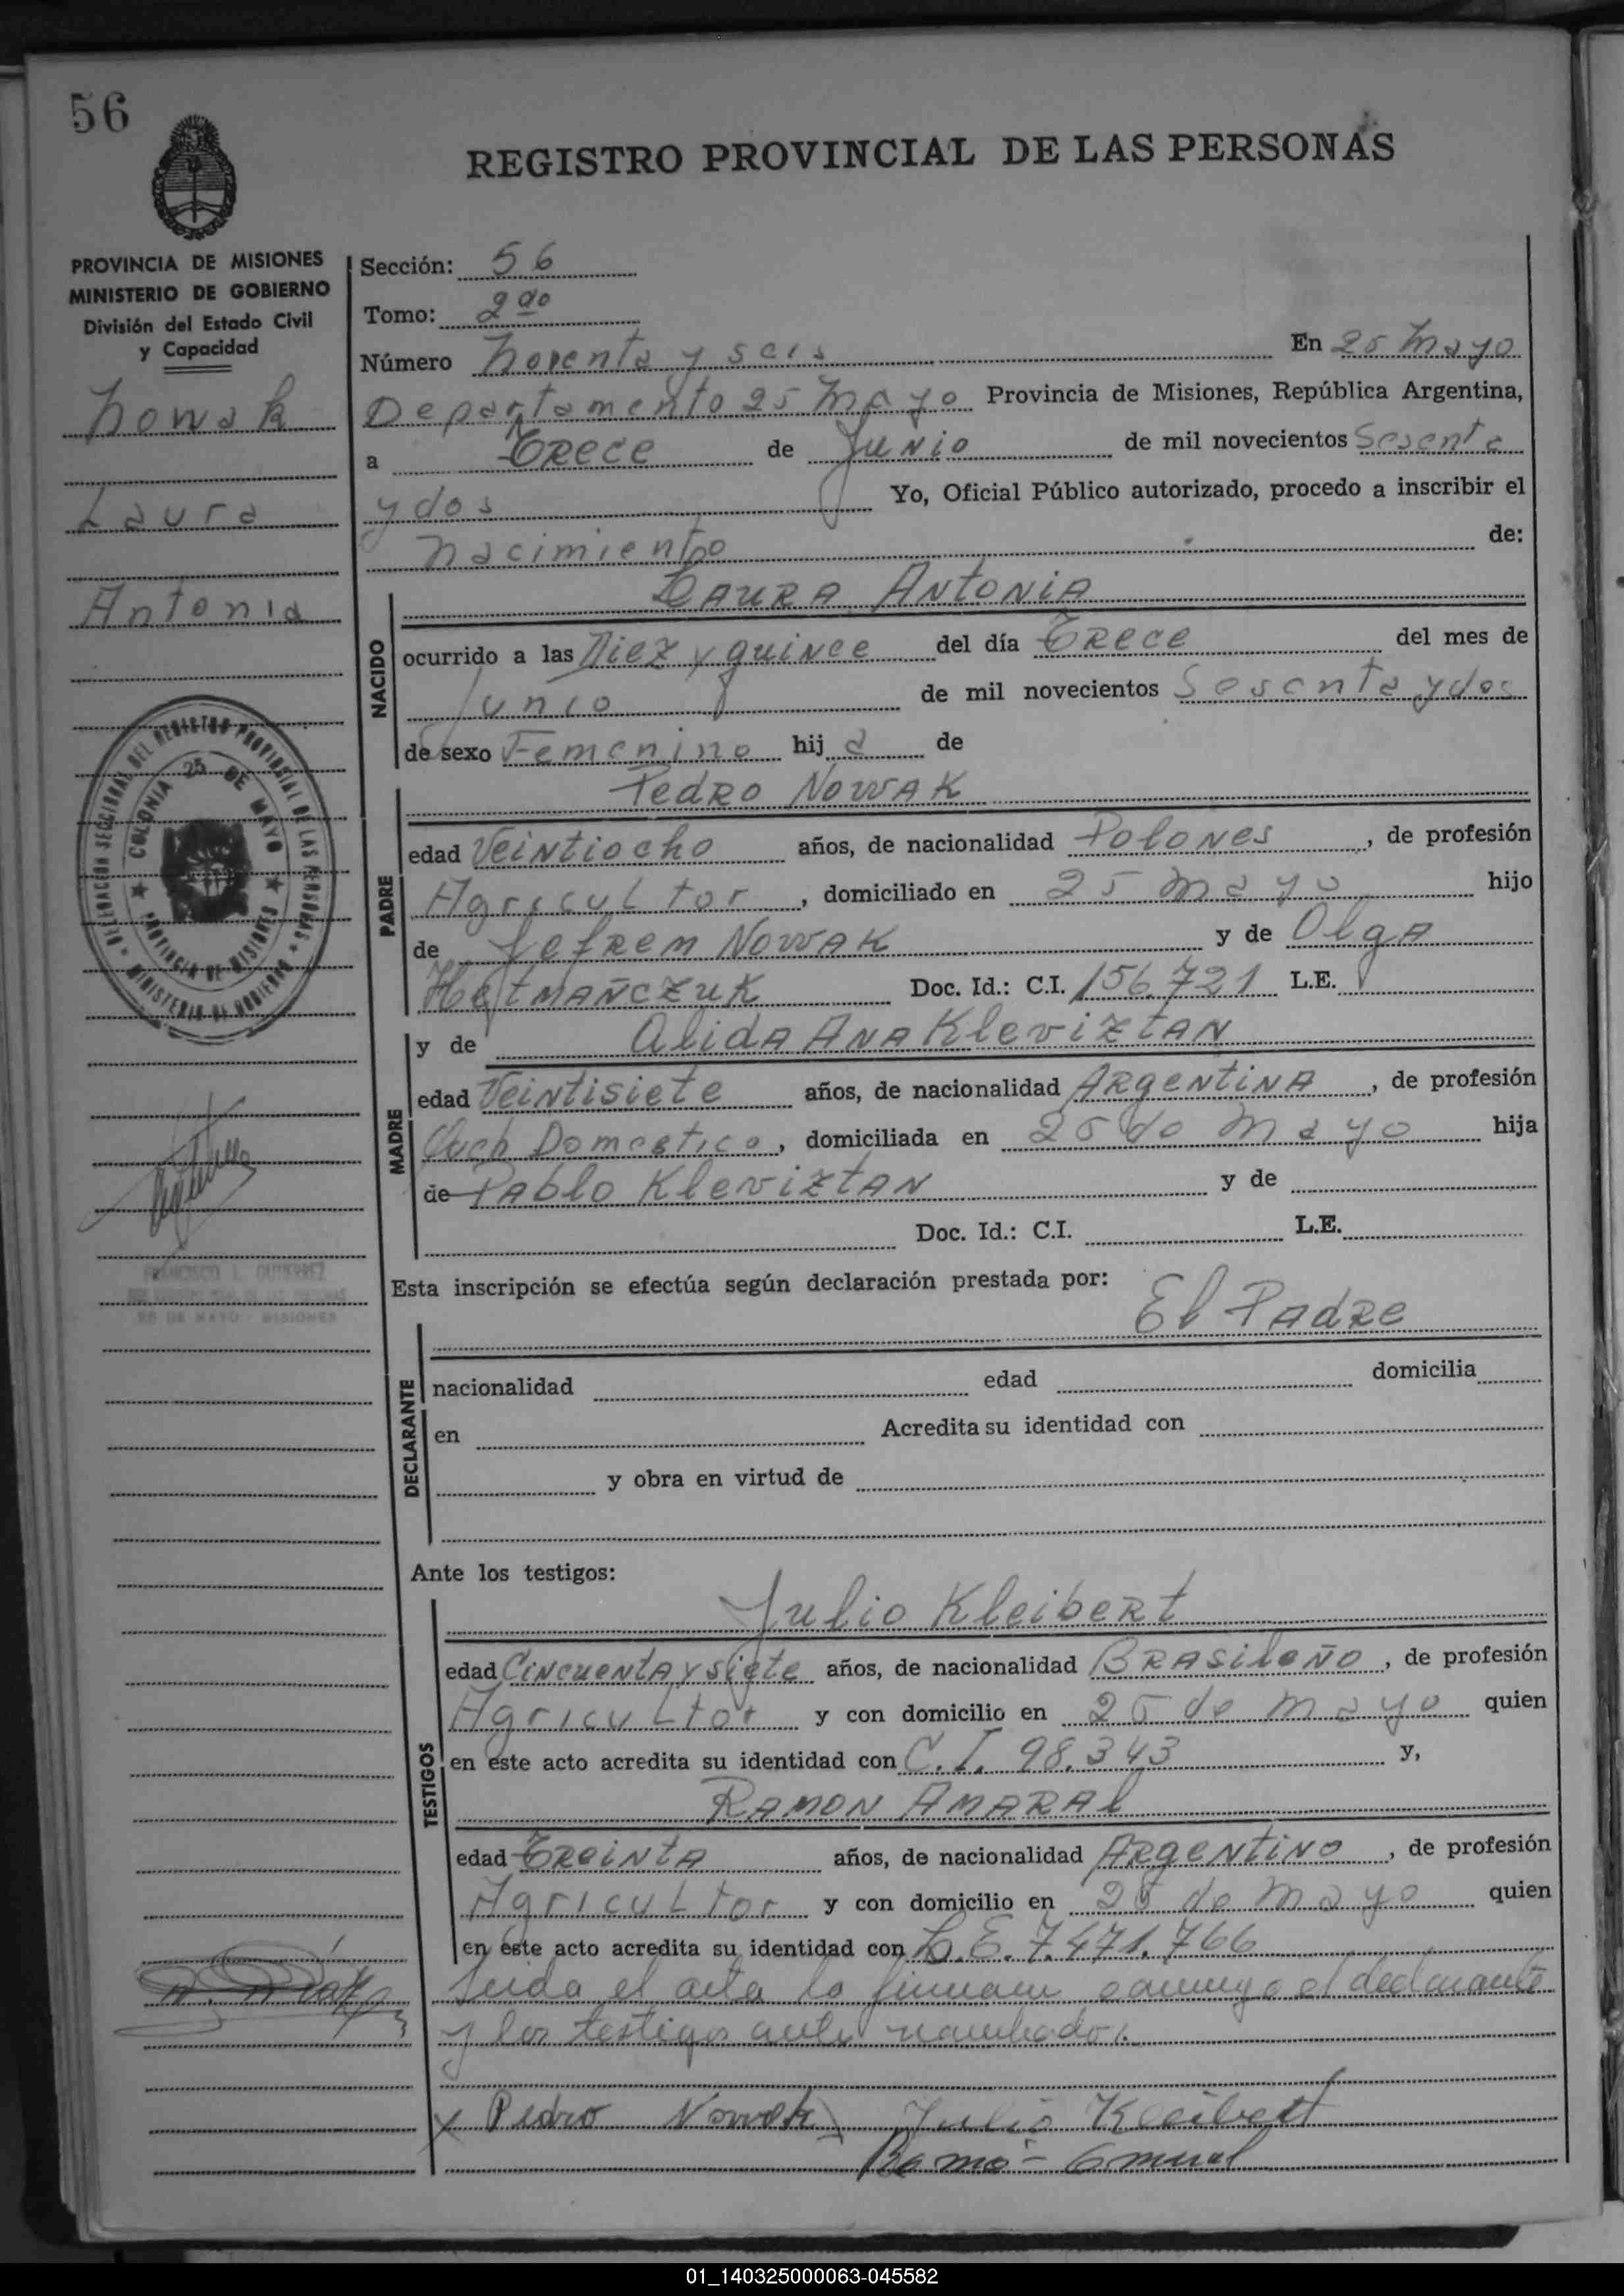 56
REGISTRO PROVINCIAL DE LAS PERSONAS
PROVINCIA DE MISIONES
MINISTERIO DE GOBIERNO
División del Estado Civil
y Capacidad
Nowak
Laura
Antonia
DELEGACION SECCIONAL DEL REGISTRO PROVINCIAL DE LAS PERSONAS
COLONIA 25 DE MAYO
PROVINCIA DE MISIONES
MINISTERIO DE GOBIERNO
FRANCISCO L. GUTIERREZ
25 DE MAYO - MISIONES
Sección: 56
Tomo: 2do
Número Noventa y seis En 25 Mayo
Departamento 25 Mayo Provincia de Misiones, República Argentina,
a Trece de Junio de mil novecientos Sesenta
y dos Yo, Oficial Público autorizado, procedo a inscribir el
nacimiento de:
NACIDO
LAURA ANTONIA
ocurrido a las Diez y quince del día Trece del mes de
Junio de mil novecientos Sesenta y dos
de sexo Femenino hij a de
PADRE
Pedro Nowak
edad Veintiocho años, de nacionalidad Polones, de profesión
Agricultor, domiciliado en 25 Mayo hijo
de Jefrem Nowak y de Olga
Hetmañczuk Doc. Id.: C.I. 156.721 L.E.
MADRE
y de Alida Ana Kleviztan
edad Veintisiete años, de nacionalidad Argentina, de profesión
Domestico, domiciliada en 25 de Mayo hija
de Pablo Kleviztan y de
Doc. Id.: C.I. L.E.
Esta inscripción se efectúa según declaración prestada por:
El Padre
DECLARANTE
nacionalidad edad domicilia
en Acredita su identidad con
y obra en virtud de
Ante los testigos:
TESTIGOS
Julio Kleibert
edad Cincuenta y siete años, de nacionalidad Brasileño, de profesión
Agricultor y con domicilio en 25 de Mayo quien
en este acto acredita su identidad con C.I. 98.343 y,
Ramon Amaral
edad Treinta años, de nacionalidad Argentino, de profesión
Agricultor y con domicilio en 25 de Mayo quien
en este acto acredita su identidad con L.E. 7.471.766
Leida el acta la firman conmigo el declarante
y los testigos ante nombrados.
x Pedro Nowak Julio Kleibert
Ramo- Amaral
01_140325000063-045582